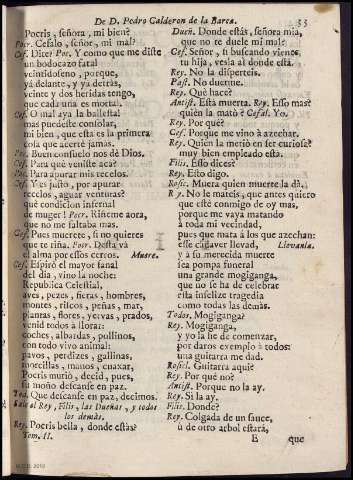 De D. Pedro Calderon de la Barca.
35
Pocris, señora, mi bien?
Pocr. Cefalo, señor, mi mal?
Cef. Dite? Poc. Y como que me diste
un bodocazo fatal
veintidoseno, porque,
yá delante, y ya detràs,
veinte y dos heridas tengo,
que cada una es mortal.
Cef. O mal aya la ballesta!
mas puedeste consolar,
mi bien, que esta es la primera
cosa que acerté jamas.
Poc. Buen consuelo nos dè Dios.
Cef. Para què veniste acà?
Poc. Para apurar mis recelos.
Cef. Y es justo, por apurar
recelos, aguar venturas?
què condicion infernal
de muger! Pocr. Riñeme aora,
que no me faltaba mas.
Cef. Pues muerete, si no quieres
que te riña. Pocr. Desta và
el alma por essos cerros. Muere.
Cef. Espirò el mayor fanal
del dia, vino la noche:
Republica Celestial,
aves, pezes, fieras, hombres,
montes, riscos, peñas, mar,
plantas, flores, yervas, prados,
venid todos à llorar:
coches, albardas, pollinos,
con todo vivo animal:
pavos, perdizes, gallinas,
morcillas, manos, cuaxar,
Pocris muriò, decid, pues,
su moño descanse en paz.
Tod. Que descanse en paz, decimos.
Sale el Rey, Filis, las Dueñas, y todos
los demàs.
Rey. Pocris bella, donde estàs?
Tom. II.
Dueñ. Donde estàs, señora mia,
que no te duele mi mal?
Cef. Señor, si buscando vienes
tu hija, vesla al donde està.
Rey. No la disperteis.
Past. No duerme.
Rey. Què hace?
Antist. Està muerta. Rey. Esso mas?
quièn la matò? Cefal. Yo.
Rey. Por què?
Cef. Porque me vino à azechar.
Rey. Quien la meriò en ser curiosa?
muy bien empleado esta.
Filis. Esso dices?
Rey. Esto digo.
Rosic. Muera quien muerte la dà.
Rey. No le mateis, que antes quiero
que estè conmigo de oy mas,
porque me vaya matando
à toda mi vecindad,
pues que mata à los que azechan:
esse cadaver llevad, Llevanla.
y à su merecida muerte
sea pompa funeral
una grande mogiganga,
que no se ha de celebrar
esta infelize tragedia
como todas las demàs.
Todos. Mogiganga?
Rey. Mogiganga,
y yo la he de comenzar,
por daros exemplo à todos:
una guitarra me dad.
Rosicl. Guitarra aqui?
Rey. Por què no?
Antist. Porque no la ay.
Rey. Si la ay.
Filis. Donde?
Rey. Colgada de un sauce,
ù de otro arbol estarà,
E que